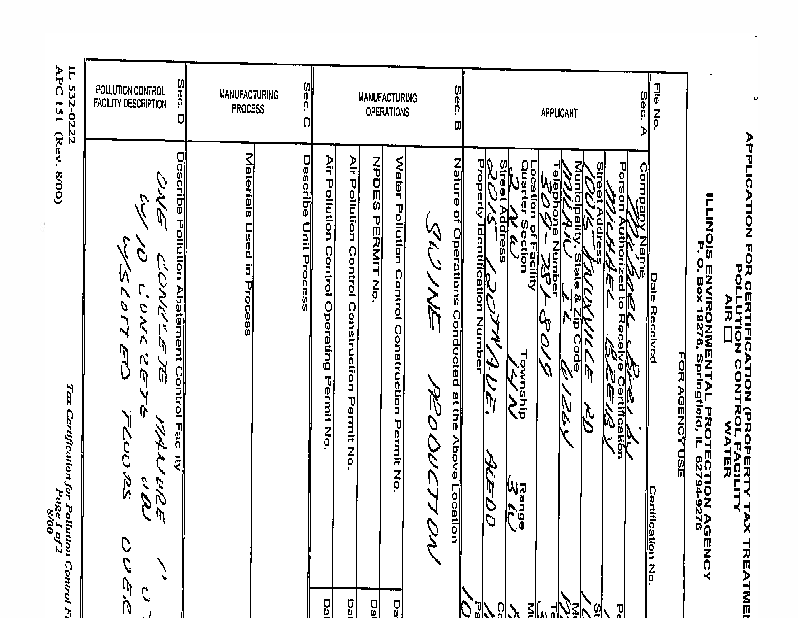 APPLICATION FOR CERTIFICATION (PROPERTY TAX TREATMEN
POLLUTION CONTROL FACILITY
AIR WATER
ILLINOIS ENVIRONMENTAL PROTECTION AGENCY
P. O. Box 19276, Springfield, IL 62794-9276
FOR AGENCY USE
File No. Date Received Certification No.
Sec. A
APPLICANT
Company Name
Michael
Person Authorized to Receive Certification
MICHAEL
Street Address
KNOXVILLE RD
Municipality, State & Zip Code
MILAN IL 61264
Telephone Number
309-
Location of Facility
Quarter Section Township Range
NW 14N 3W
Street Address
2015 120TH AVE. ALEDO
Property Identification Number
Sec. B
MANUFACTURING
OPERATIONS
Nature of Operations Conducted at the Above Location
SWINE PRODUCTION
Water Pollution Control Construction Permit No.
NPDES PERMIT No.
Air Pollution Control Construction Permit No.
Air Pollution Control Operating Permit No.
Sec. C
MANUFACTURING
PROCESS
Describe Unit Process
Materials Used in Process
Sec. D
POLLUTION CONTROL
FACILITY DESCRIPTION
Describe Pollution Abatement Control Facility
ONE CONCRETE MANURE
W/ 10' CONCRETE
W/SLOTTED FLOORS OVER
IL 532-0222
APC 151 (Rev. 8/00)
Tax Certification for Pollution Control F
Page 1 of 2
8/00